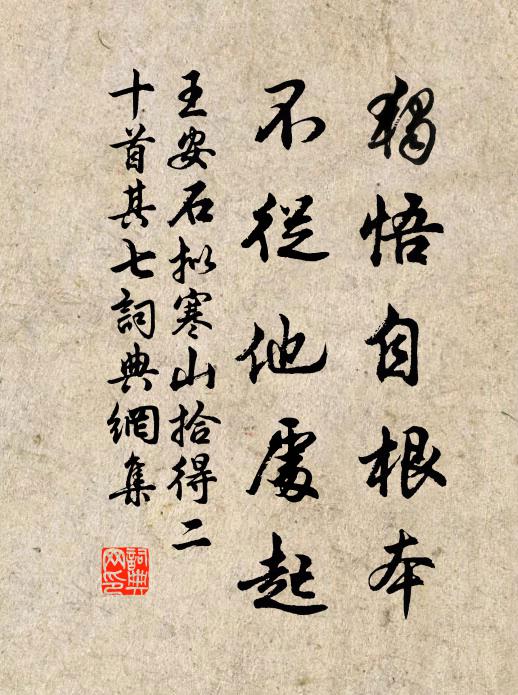 獨悟自根本
不從他處起
王安石拟寒山拾得二
十首其七詞典網集
詞典网印